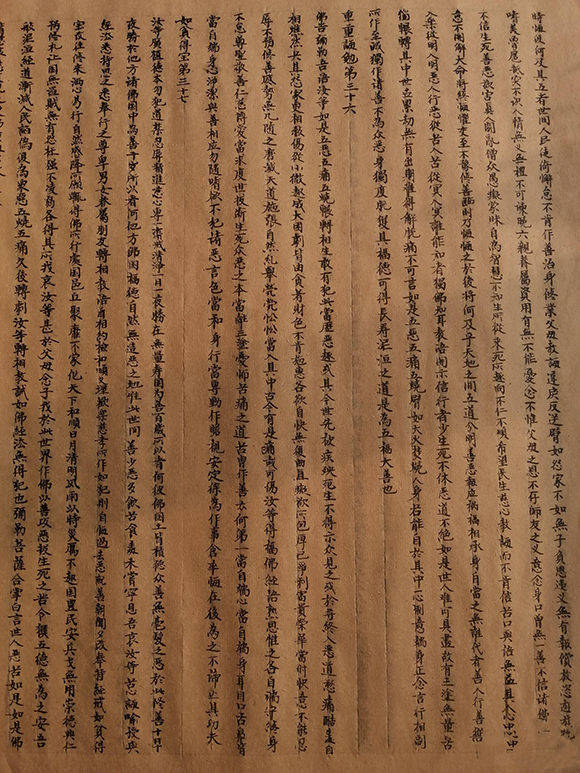 時悔復何及其五者世間人民徙倚懈怠不肯作善治身修業父母教誨違戾反逆譬如怨家不如無子負恩違義無有報償放恣遊散耽
嗜美魯扈抵突不识人情無義無禮不可諫曉六親眷屬資用有無不能憂念不惟父母之恩不存師友之义意念身口曾無一善不信諸佛
不信生死善惡欲害真人鬪亂僧眾愚癡蒙昧自為智慧不知生所從來死所趣向不仁不順希望長生慈心教誨而不肯信苦口與語無益其人心中
意不開解大命將終悔懼交至不豫修善臨時乃悔悔之於後將何及乎天地之間五道分明善惡報應禍福相承身自當之無誰代者善人行善從
入樂從明入明惡人行惡從苦入苦從冥入冥誰能知者獨佛知耳教語開示信行者少生死不休惡道不絕如是世人難可具盡故有三塗無量苦
惱展轉其中世世累劫無有出期難得解脫痛不可言如是五惡五痛五燒譬如大火焚燒人身若能自於其中一心制意端身正念言行相副
所作至誠獨作諸善不為众惡身獨度脫獲其福德可得長寿泥洹之道是為五大善也
重重誨勉第三十六
佛告彌勒吾語汝等如是五惡五痛五燒展轉相生敢有犯此當歷惡趣或其今世先被病殃死生不得示众見之或於壽終入三惡道愁痛酷毒自
相燋然共其怨家更相殺傷從小微起成大困劇皆由貪著財色不肯施惠各欲自快無復曲直癡欲所迫厚己爭利富貴榮華當時快意不能忍
辱不務修善威勢無几隨以磨滅天道施張自然糺舉煢煢忪忪當入其中古今有是痛哉可傷汝等得佛經語熟思惟之各自端守終身
不怠尊聖敬善仁慈博愛當求度世拔斷生死众惡之本當離三塗憂怖苦痛之道若曹作善云何第一當自端心當自端身耳目口鼻皆
當自端身心淨潔與善相應勿隨嗜欲不犯諸惡言色當和身行當專動作瞻視安定徐為作事倉卒敗悔在後為之不諦亡其功夫
如貧得寶第三十七
汝等廣植德本勿犯道禁忍辱精進慈心專一齋戒清淨一日一夜勝在無量壽國為善百歲所以者何彼佛國土皆積德众善無毫髮之惡於此修善十日十
夜勝於他方諸佛國中為善千岁所以者何他方佛國福德自然無造惡之地惟此世間善少惡多飲苦食毒未嘗寧息吾哀汝等苦心誨喻授與
經法悉持思之悉奉行之尊卑男女眷屬朋友轉相教語自相約檢和順义理歡樂慈孝所作如犯則自悔過去惡就善朝聞夕改奉持經戒如貧得
宝改往修來洗心易行自然感降所願輒得佛所行處國邑丘聚靡不蒙化天下和順日月清明風雨以時災厲不起國豐民安兵戈無用崇德興仁
務修礼让國無盜賊無有怨枉強不凌弱各得其所我哀汝等甚於父母念子我於此世界作佛以善攻惡拔生死之苦令獲五德無為之安吾
般泥洹經道漸滅人民諂偽復為众惡五燒五痛久後轉劇汝等轉相教誡如佛經法無得犯也彌勒菩薩合掌白言世人惡苦如是如是佛